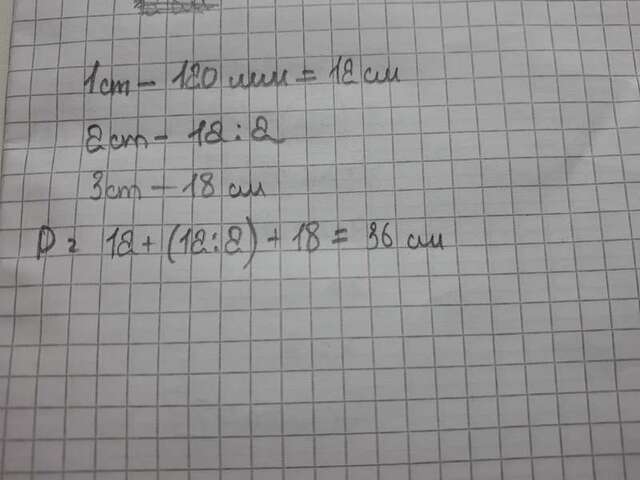 1ст – 120 мм = 12 см
2ст – 12 : 2
3ст – 18 см
P = 12 + (12:2) + 18 = 36 см